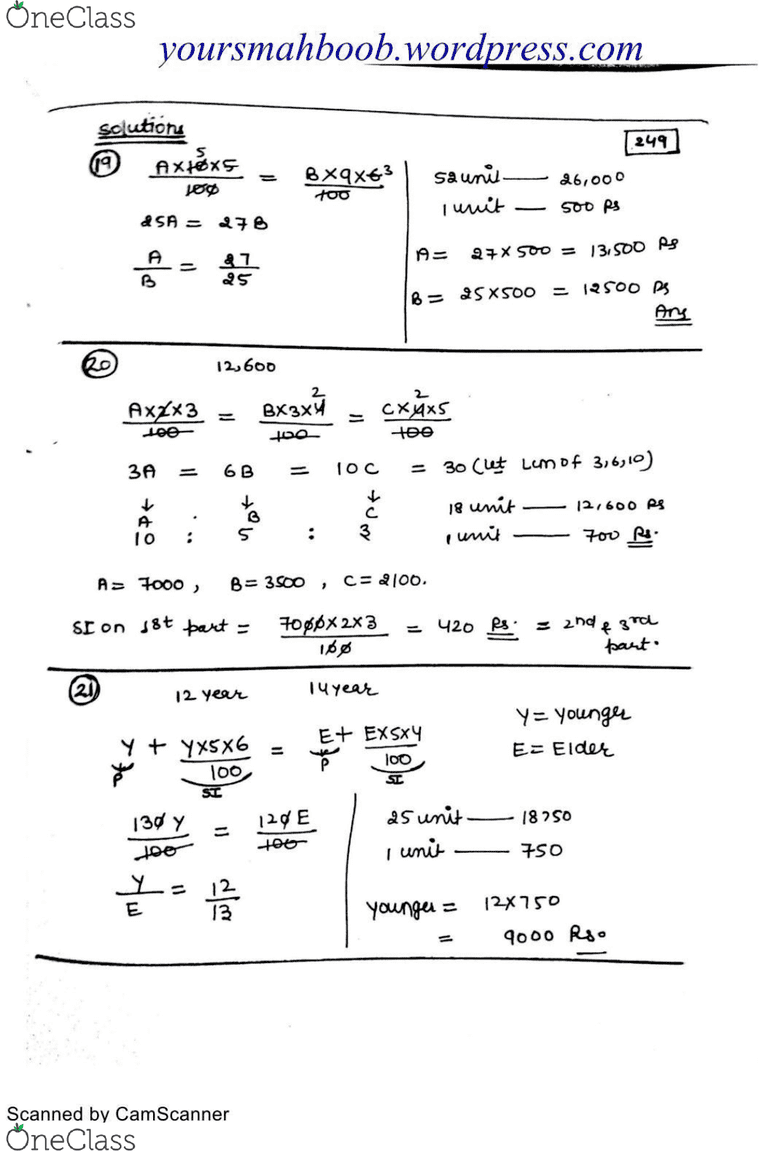 OneClass
yoursmahboob.wordpress.com
Solutions
249
19 A×10×5/100 = B×9×6/100
5
3
25A = 27B
A/B = 27/25
52 unit — 26,000
1 unit — 500 Rs
A = 27×500 = 13,500 Rs
B = 25×500 = 12500 Rs
Ans
20 12,600
A×2×3/100 = B×3×4/100 = C×4×5/100
2 2
3A = 6B = 10C = 30 (Let Lcm of 3,6,10)
↓ ↓ ↓
A : B C
10 : 5 : 3
18 unit — 12,600 Rs
1 unit — 700 Rs.
A = 7000, B = 3500, C = 2100.
SI on 1st part = 7000×2×3/100 = 420 Rs. = 2nd & 3rd part.
21 12 year 14 year
Y = Younger
E = Elder
Y + Y×5×6/100 = E + E×5×4/100
P SI P SI
130Y/100 = 120E/100
Y/E = 12/13
25 unit — 18750
1 unit — 750
younger = 12×750
= 9000 Rs.
Scanned by CamScanner
OneClass